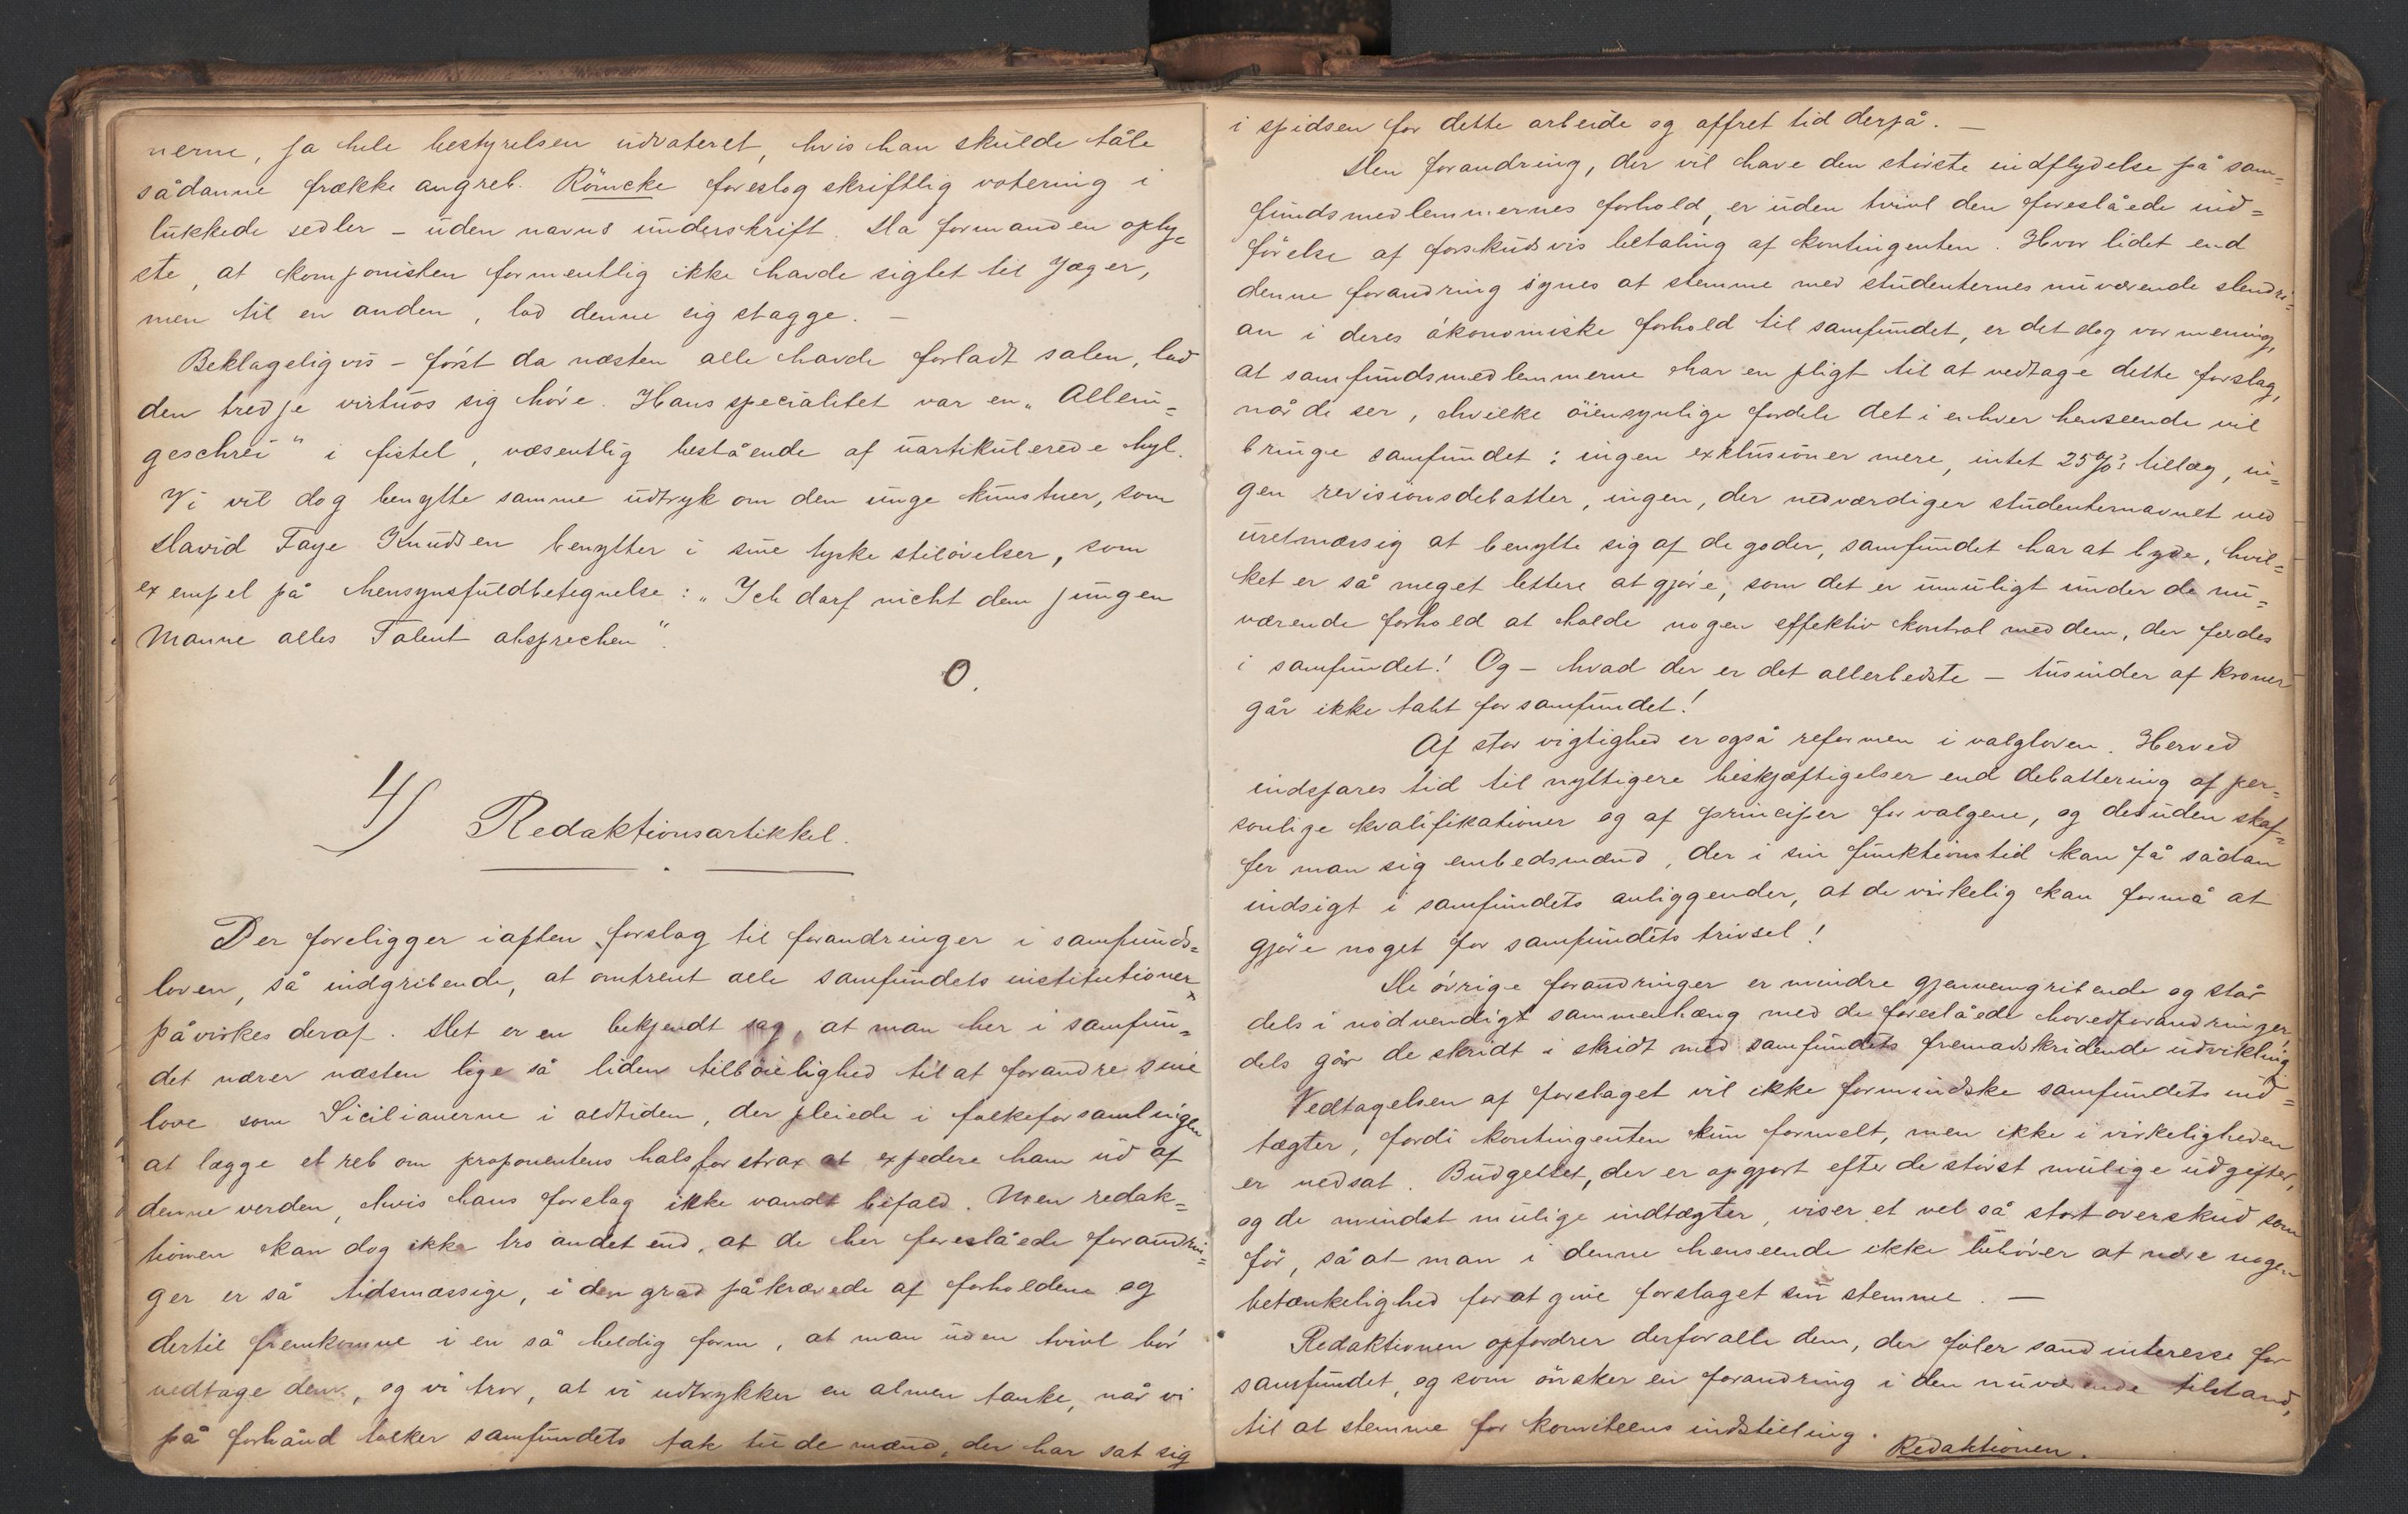 nerne, ja hele bestyrelsen udvoteret, hvis han skulde tåle
sådanne frække angreb. Römcke foreslog skriftlig votering i
lukkede sedler – uden navns underskrift. Da formanden oply=
ste, at komponisten formentlig ikke havde sigtet til Jæger,
men til en anden, lod denne sig stagge. –
Beklageligvis – först da næsten alle havde forladt salen, lod
den tredje virtuos sig höre. Hans specialitet var en „Allein=
geschrei“ i fistel, væsentlig bestående af uartikulerede hyl.
Vi vil dog benytte samme udtryk om den unge kunstner, som
David Faye Knudsen benytter i sine tyske stilövelser, som
exempel på hensynsfuldbetegnelse: „Ich darf nicht dem jungen
Manne alles Talent absprechen“.
O.
4) Redaktionsartikkel.
Der foreligger iaften forslag til forandringer i samfunds=
loven, så indgribende, at omtrent alle samfundets institutioner
påvirkes deraf. Det er en bekjendt sag, at man her i samfun=
det nærer næsten lige så liden tilböielighed til at forandre sine
love som Sicilianerne i oldtiden, der pleiede i folkeforsamlingen
at lægge et reb om proponentens hals for strax at expedere ham ud af
denne verden, hvis hans forslag ikke vandt bifald. Men redak=
tionen kan dog ikke tro andet end, at de her foreslåede forandrin=
ger er så tidsmæssige, i den grad påkrævede af forholdene og
dertil fremkomne i en så heldig form, at man uden tvivl bör
vedtage dem, og vi tror, at vi udtrykker en almen tanke, når vi
på forhånd tolker samfundets tak til de mænd, der har sat sig
i spidsen for dette arbeide og offret tid derpå. –
Den forandring, der vil have den störste indflydelse på sam=
fundsmedlemmernes forhold, er uden tvivl den foreslåede ind=
förelse af forskudsvis betaling af kontingenten. Hvor lidet end
denne forandring synes at stemme med studenternes nuværende slendri=
an i deres ökonomiske forhold til samfundet, er det dog vor mening,
at samfundsmedlemmerne har en pligt til at vedtage dette forslag,
når de ser, hvilke öiensynlige fordele det i enhver henseende vil
bringe samfundet: ingen exklusioner mere, intet 25%s tillæg, in=
gen revisionsdebatter, ingen, der nedværdiger studenternavnet ved
uretmæssig at benytte sig af de goder, samfundet har at byde, hvil=
ket er så meget lettere at gjöre, som det er umuligt under de nu=
værende forhold at holde nogen effektiv kontrol med dem, der færdes
i samfundet! Og – hvad der er det allerbedste – tusinder af kroner
går ikke tabt for samfundet!
Af stor vigtighed er også reformen i valgloven. Herved
indspares tid til nyttigere beskjæftigelser end debattering af per=
sonlige kvalifikationer og af principer for valgene, og desuden skaf=
fer man sig embedsmænd, der i sin funktionstid kan få sådan
indsigt i samfundets anliggender, at de virkelig kan formå at
gjöre noget for samfundets trivsel!
De övrige forandringer er mindre gjennemgribende og står
dels i nödvendigt sammenhæng med de foreslåede hovedforandringer,
dels går de skridt i skridt med samfundets fremadskridende udvikling.
Vedtagelsen af forslaget vil ikke formindske samfundets ind=
tægter, fordi kontingenten kun formelt, men ikke i virkeligheden
er nedsat. Budgettet, der er opgjort efter de störst mulige udgifter,
og de mindst mulige indtægter, viser et vel så stort overskud som
för, så at man i denne henseende ikke behöver at nære nogen
betænkelighed for at give forslaget sin stemme. –
Redaktionen opfordrer derfor alle dem, der föler sand interesse for
samfundet, og som önsker en forandring i den nuværende tilstand,
til at stemme for komiteens indstilling. Redaktionen.